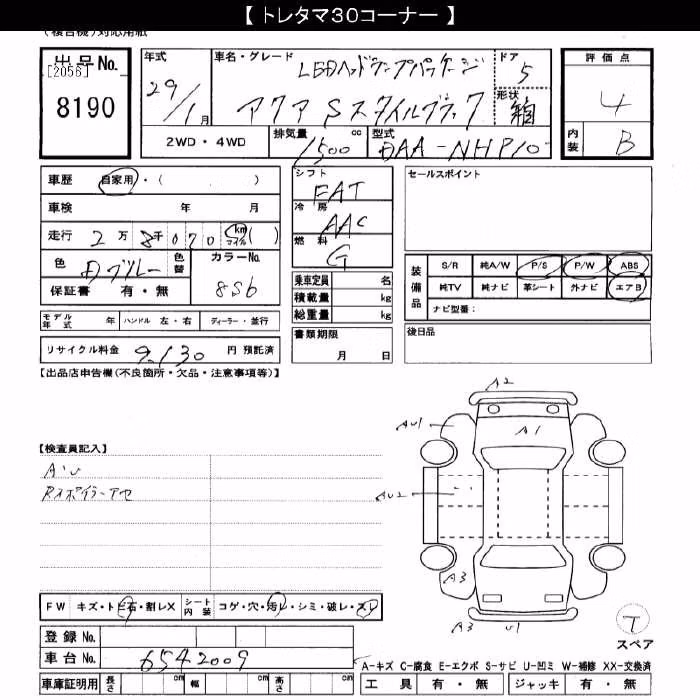 【 トレタマ30コーナー 】
(複合機)対応用紙
出品No.
[2056]
8190
年式
29/1月
車名・グレード
LEDヘッドランプパッケージ
アクア Sスタイルブラック
ドア
5
形状
箱
評価点
4
内装
B
2WD・4WD
排気量
1500 cc
型式
DAA-NHP10
車歴 自家用・( )
車検 年 月
走行 2万 8千 0 7 0 km マイル ( )
色 Dブルー
色替
カラーNo.
8S6
保証書 有・無
シフト
FAT
冷房
AAC
燃料
G
乗車定員 名
積載量 kg
総重量 kg
セールスポイント
装備品
S/R 純A/W P/S P/W ABS
純TV 純ナビ 革シート 外ナビ エアB
ナビ型番:
モデル年式 年 ハンドル 左・右 ディーラー・並行
リサイクル料金 9,130 円 預託済
書類期限
月 日
後日品
【出品店申告欄(不良箇所・欠品・注意事項等)】
【検査員記入】
A・U
Rスポイラーアセ
A2
AU1
A1
AU2
A3
A3 U1
T
スペア
FW キズ・トビ石・割レX
シート内装 コゲ・穴・汚レ・シミ・破レ・スレ
登録No.
車台No. 6542009
A-キズ C-腐食 E-エクボ S-サビ U-凹ミ W-補修 XX-交換済
車庫証明用 長さ cm 幅 cm 高さ cm
工具 有・無 ジャッキ 有・無